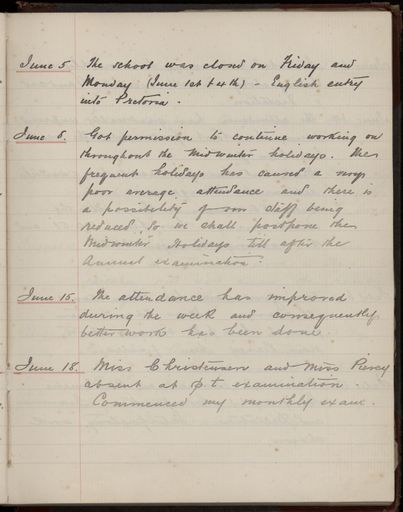 June 5. The school was closed on Friday and
Monday (June 1st & 4th) - English entry
into Pretoria.
June 8. Got permission to continue working on
throughout the Midwinter holidays. The
frequent holidays has caused a very
poor average attendance and there is
a possibility of our staff being
reduced, so we shall postpone the
Midwinter Holidays till after the
Annual examination.
June 15. The attendance has improved
during the week and consequently
better work has been done.
June 18. Miss Christensen and Miss Piercy
absent at p.t. examination.
Commenced my monthly exam.